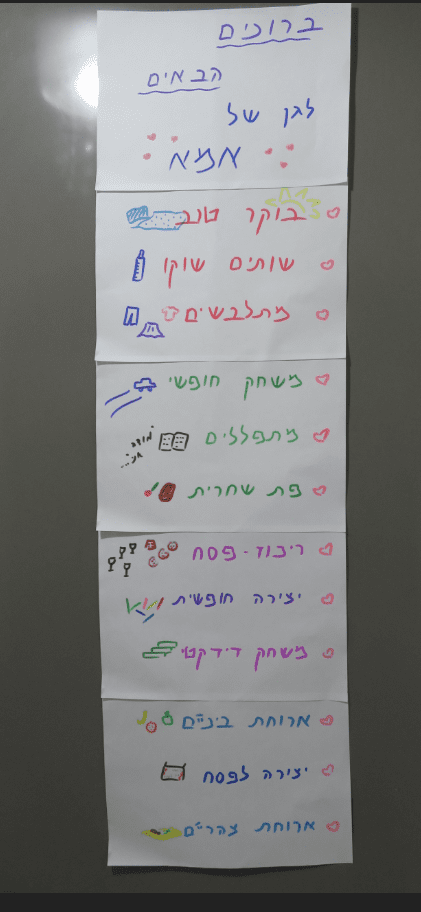 ברוכים
הבאים
לגן של
אמא
בוקר טוב
שותים שוקו
מתלבשים
משחק חופשי
מתפללים
מודה
אני...
פת שחרית
ריכוז - פסח
יצירה חופשית
משחק דידקטי
ארוחת ביניים
יצירה לפסח
ארוחת צהריים